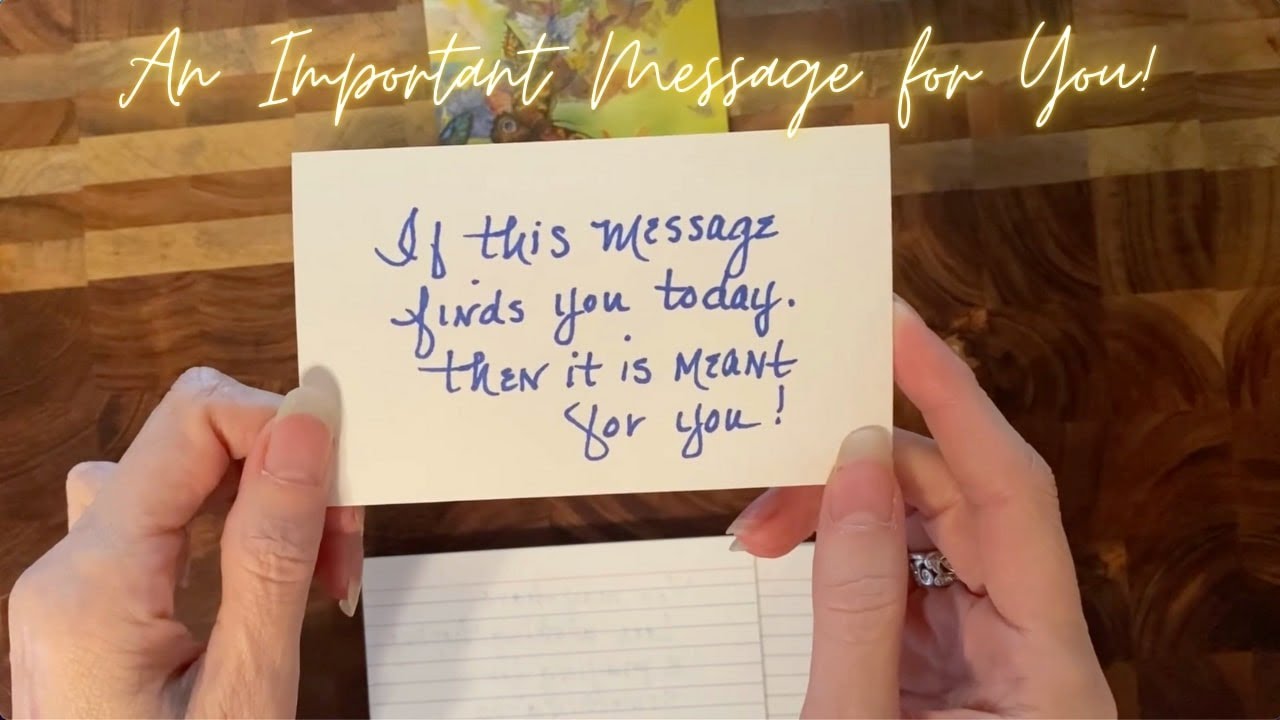 An Important Message for You!
If this message
finds you today.
then it is meant
for you!